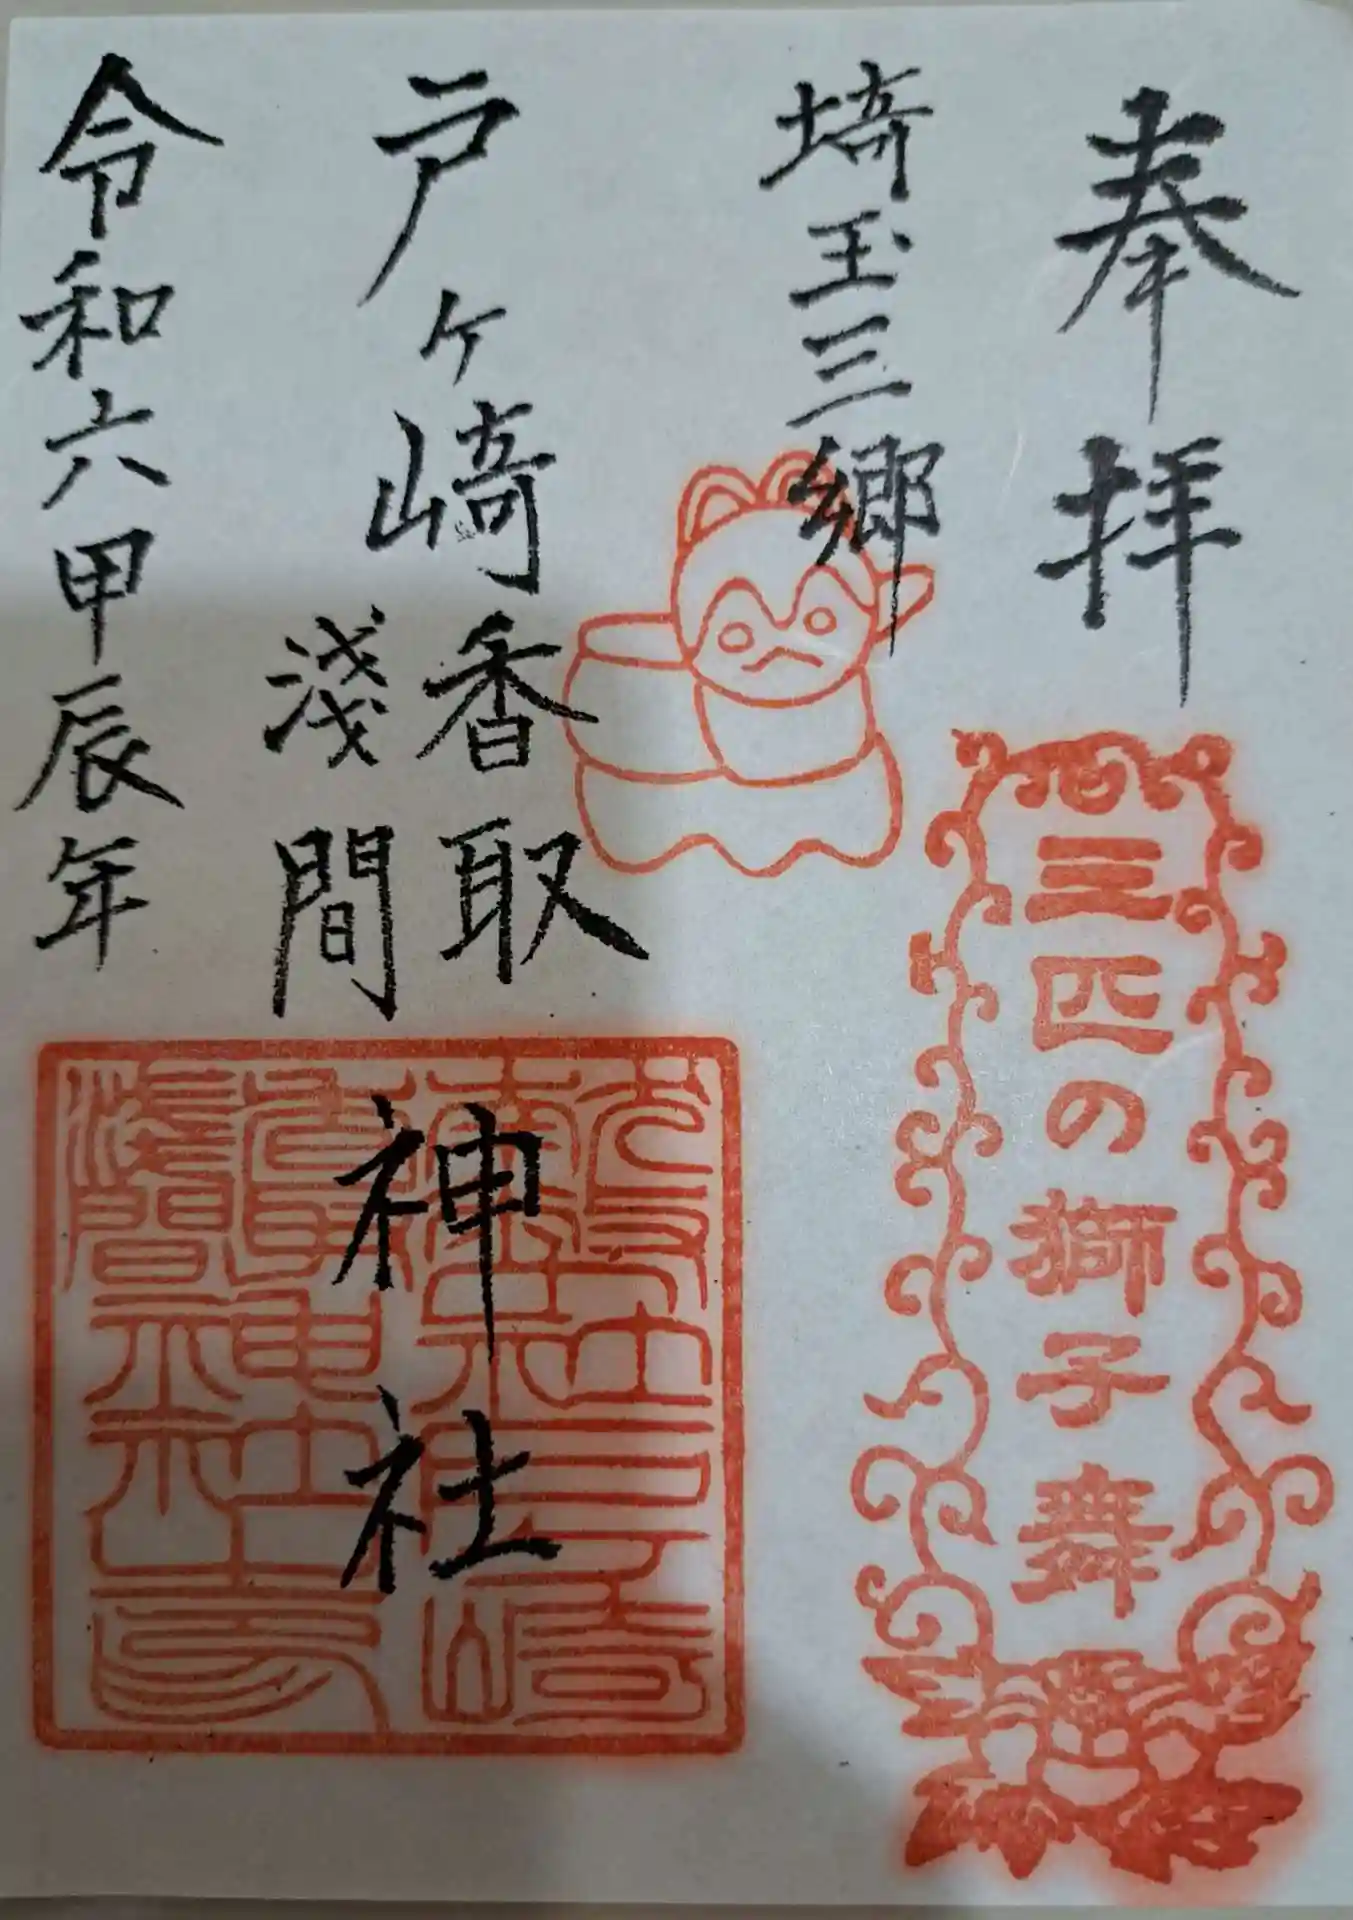 奉拝
三匹の獅子舞
埼玉三郷
戸ヶ崎香取
浅間
神社
令和六甲辰年